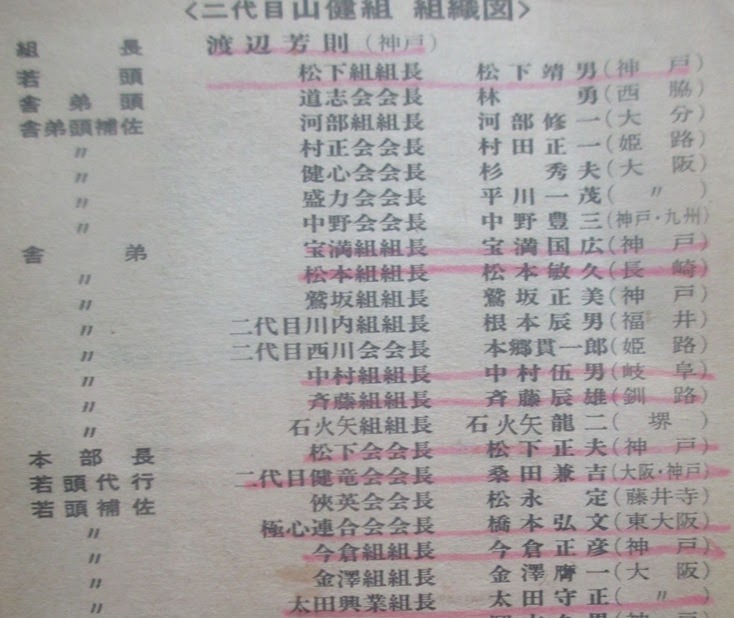 <二代目山健組 組織図>
組長 渡辺芳則(神戸)
若頭 松下組組長 松下靖男(神戸)
舎弟頭 道志会会長 林勇(西脇)
舎弟頭補佐 河部組組長 河部修一(大分)
〃 村正会会長 村田正一(姫路)
〃 健心会会長 杉秀夫(大阪)
〃 盛力会会長 平川一茂(〃)
〃 中野会会長 中野豊三(神戸・九州)
舎弟 宝満組組長 宝満国広(神戸)
〃 松本組組長 松本敏久(長崎)
〃 鷲坂組組長 鷲坂正美(神戸)
〃 二代目川内組組長 根本辰男(福井)
〃 二代目西川会会長 本郷貫一郎(姫路)
〃 中村組組長 中村伍男(岐阜)
〃 斉藤組組長 斉藤辰雄(釧路)
〃 石火矢組組長 石火矢龍二(堺)
本部長 松下会会長 松下正夫(神戸)
若頭代行 二代目健竜会会長 桑田兼吉(大阪・神戸)
若頭補佐 俠英会会長 松永定(藤井寺)
〃 極心連合会会長 橋本弘文(東大阪)
〃 今倉組組長 今倉正彦(神戸)
〃 金澤組組長 金澤膺一(大阪)
〃 太田興業組長 太田守正(〃)